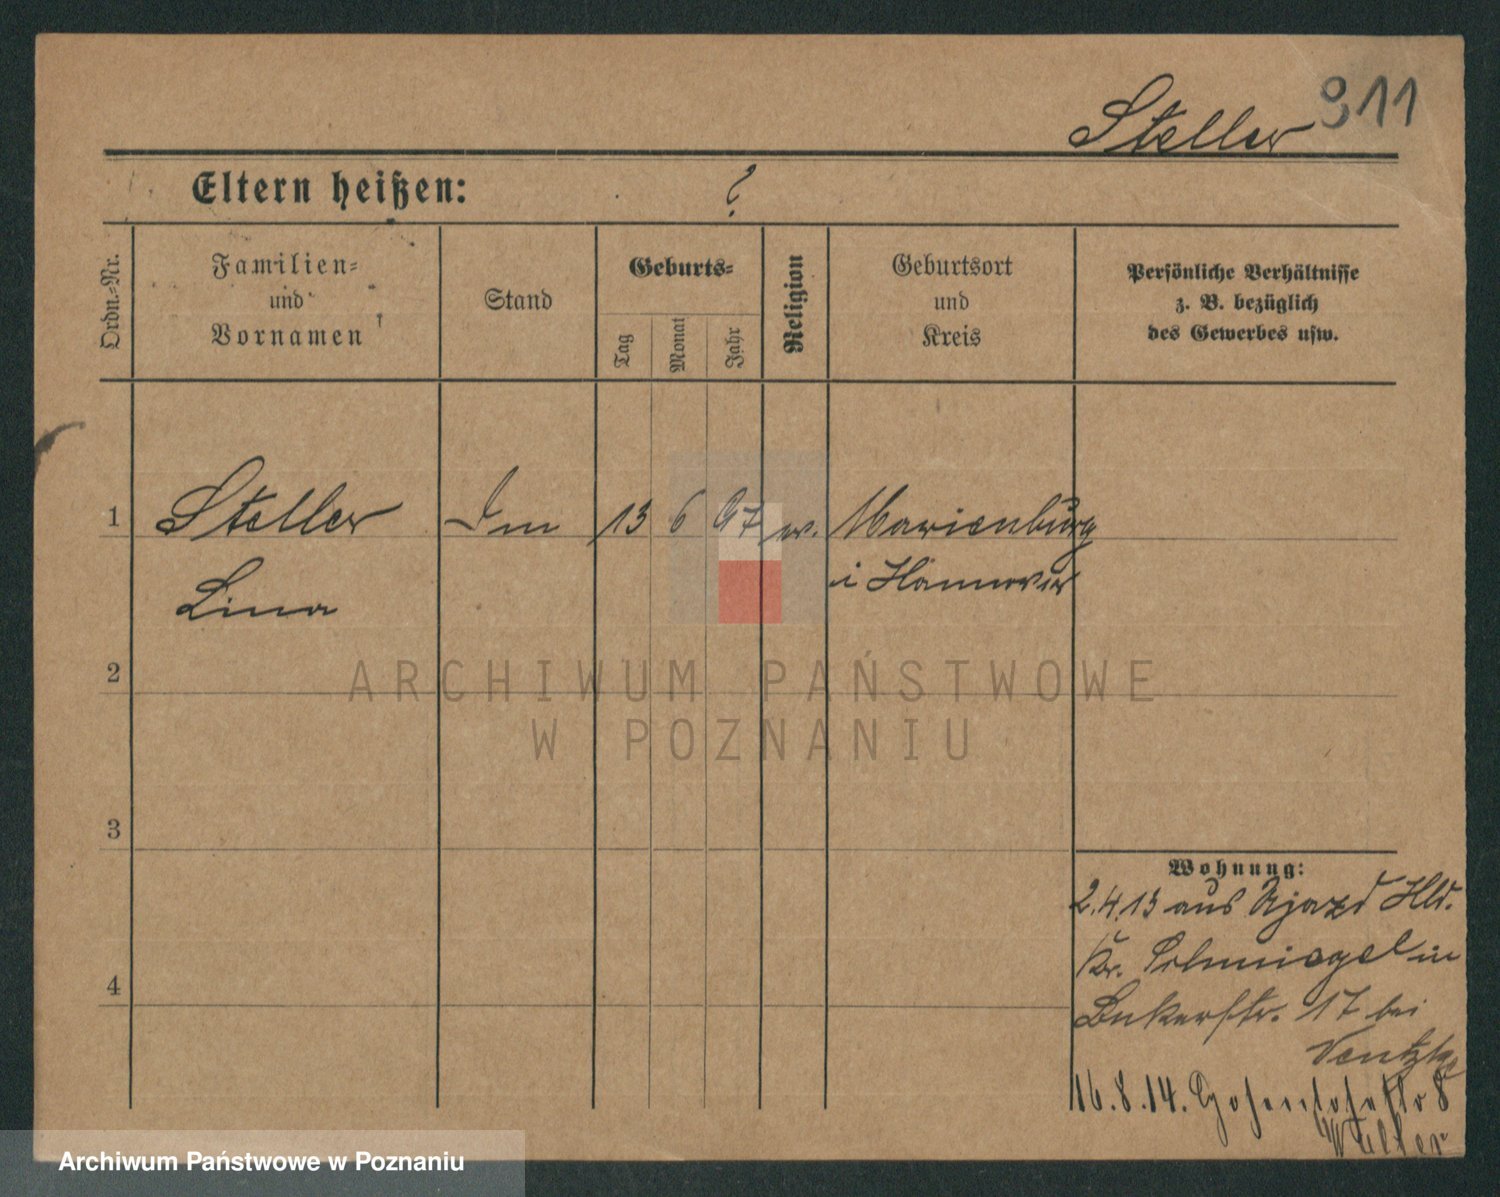 Steller 911
Eltern heißen: ?
Ordn.-Nr.
Familien-
und
Vornamen
Stand
Geburts-
Tag
Monat
Jahr
Religion
Geburtsort
und
Kreis
Persönliche Verhältnisse
z. B. bezüglich
des Gewerbes usw.
1 Steller 13 6 97 ev. Marienburg
Lina i Hannover
2
3
4
Wohnung:
2.4.13 aus Ujazd Hld.
Kr. Schmiegel in
Bukerstr. 17 bei
Ventzke
16.8.14. 8
Müller
ARCHIWUM PAŃSTWOWE
W POZNANIU
Archiwum Państwowe w Poznaniu